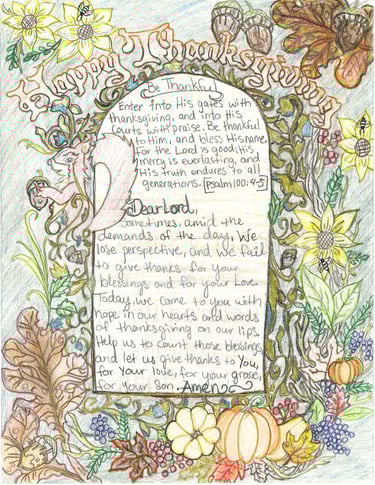 Happy Thanksgiving
Be Thankful
Enter into His gates with
thanksgiving, and into His
Courts with praise. Be thankful
to Him, and bless His name.
For the Lord is good; His
mercy is everlasting, and
His truth endures to all
generations. [Psalm 100:4-5]
Dear Lord,
Sometimes, amid the
demands of the day, we
lose perspective, and we fail
to give thanks for your
blessings and for your Love.
Today, we come to you with
hope in our hearts and words
of thanksgiving on our lips.
Help us to count those blessings,
and let us give thanks to You,
for your love, for your grace,
for your Son. Amen